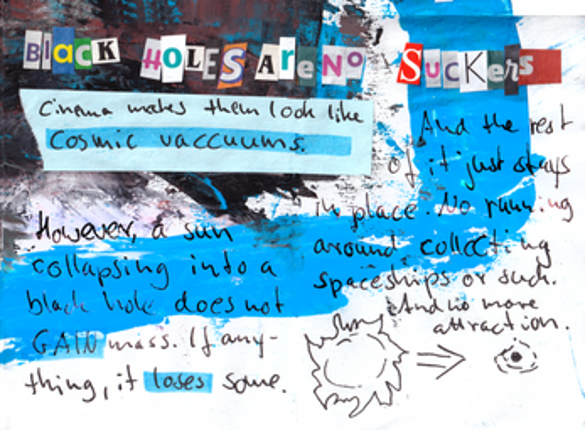 Black HOLES Are NO SUCKers
Cinema makes them look like
Cosmic vaccuums.
However, a sun
collapsing into a
black hole does not
GAIN mass. If any-
thing, it loses some.
And the rest
of it just stays
in place. No running
around collecting
spaceships or such.
And no more
attraction.